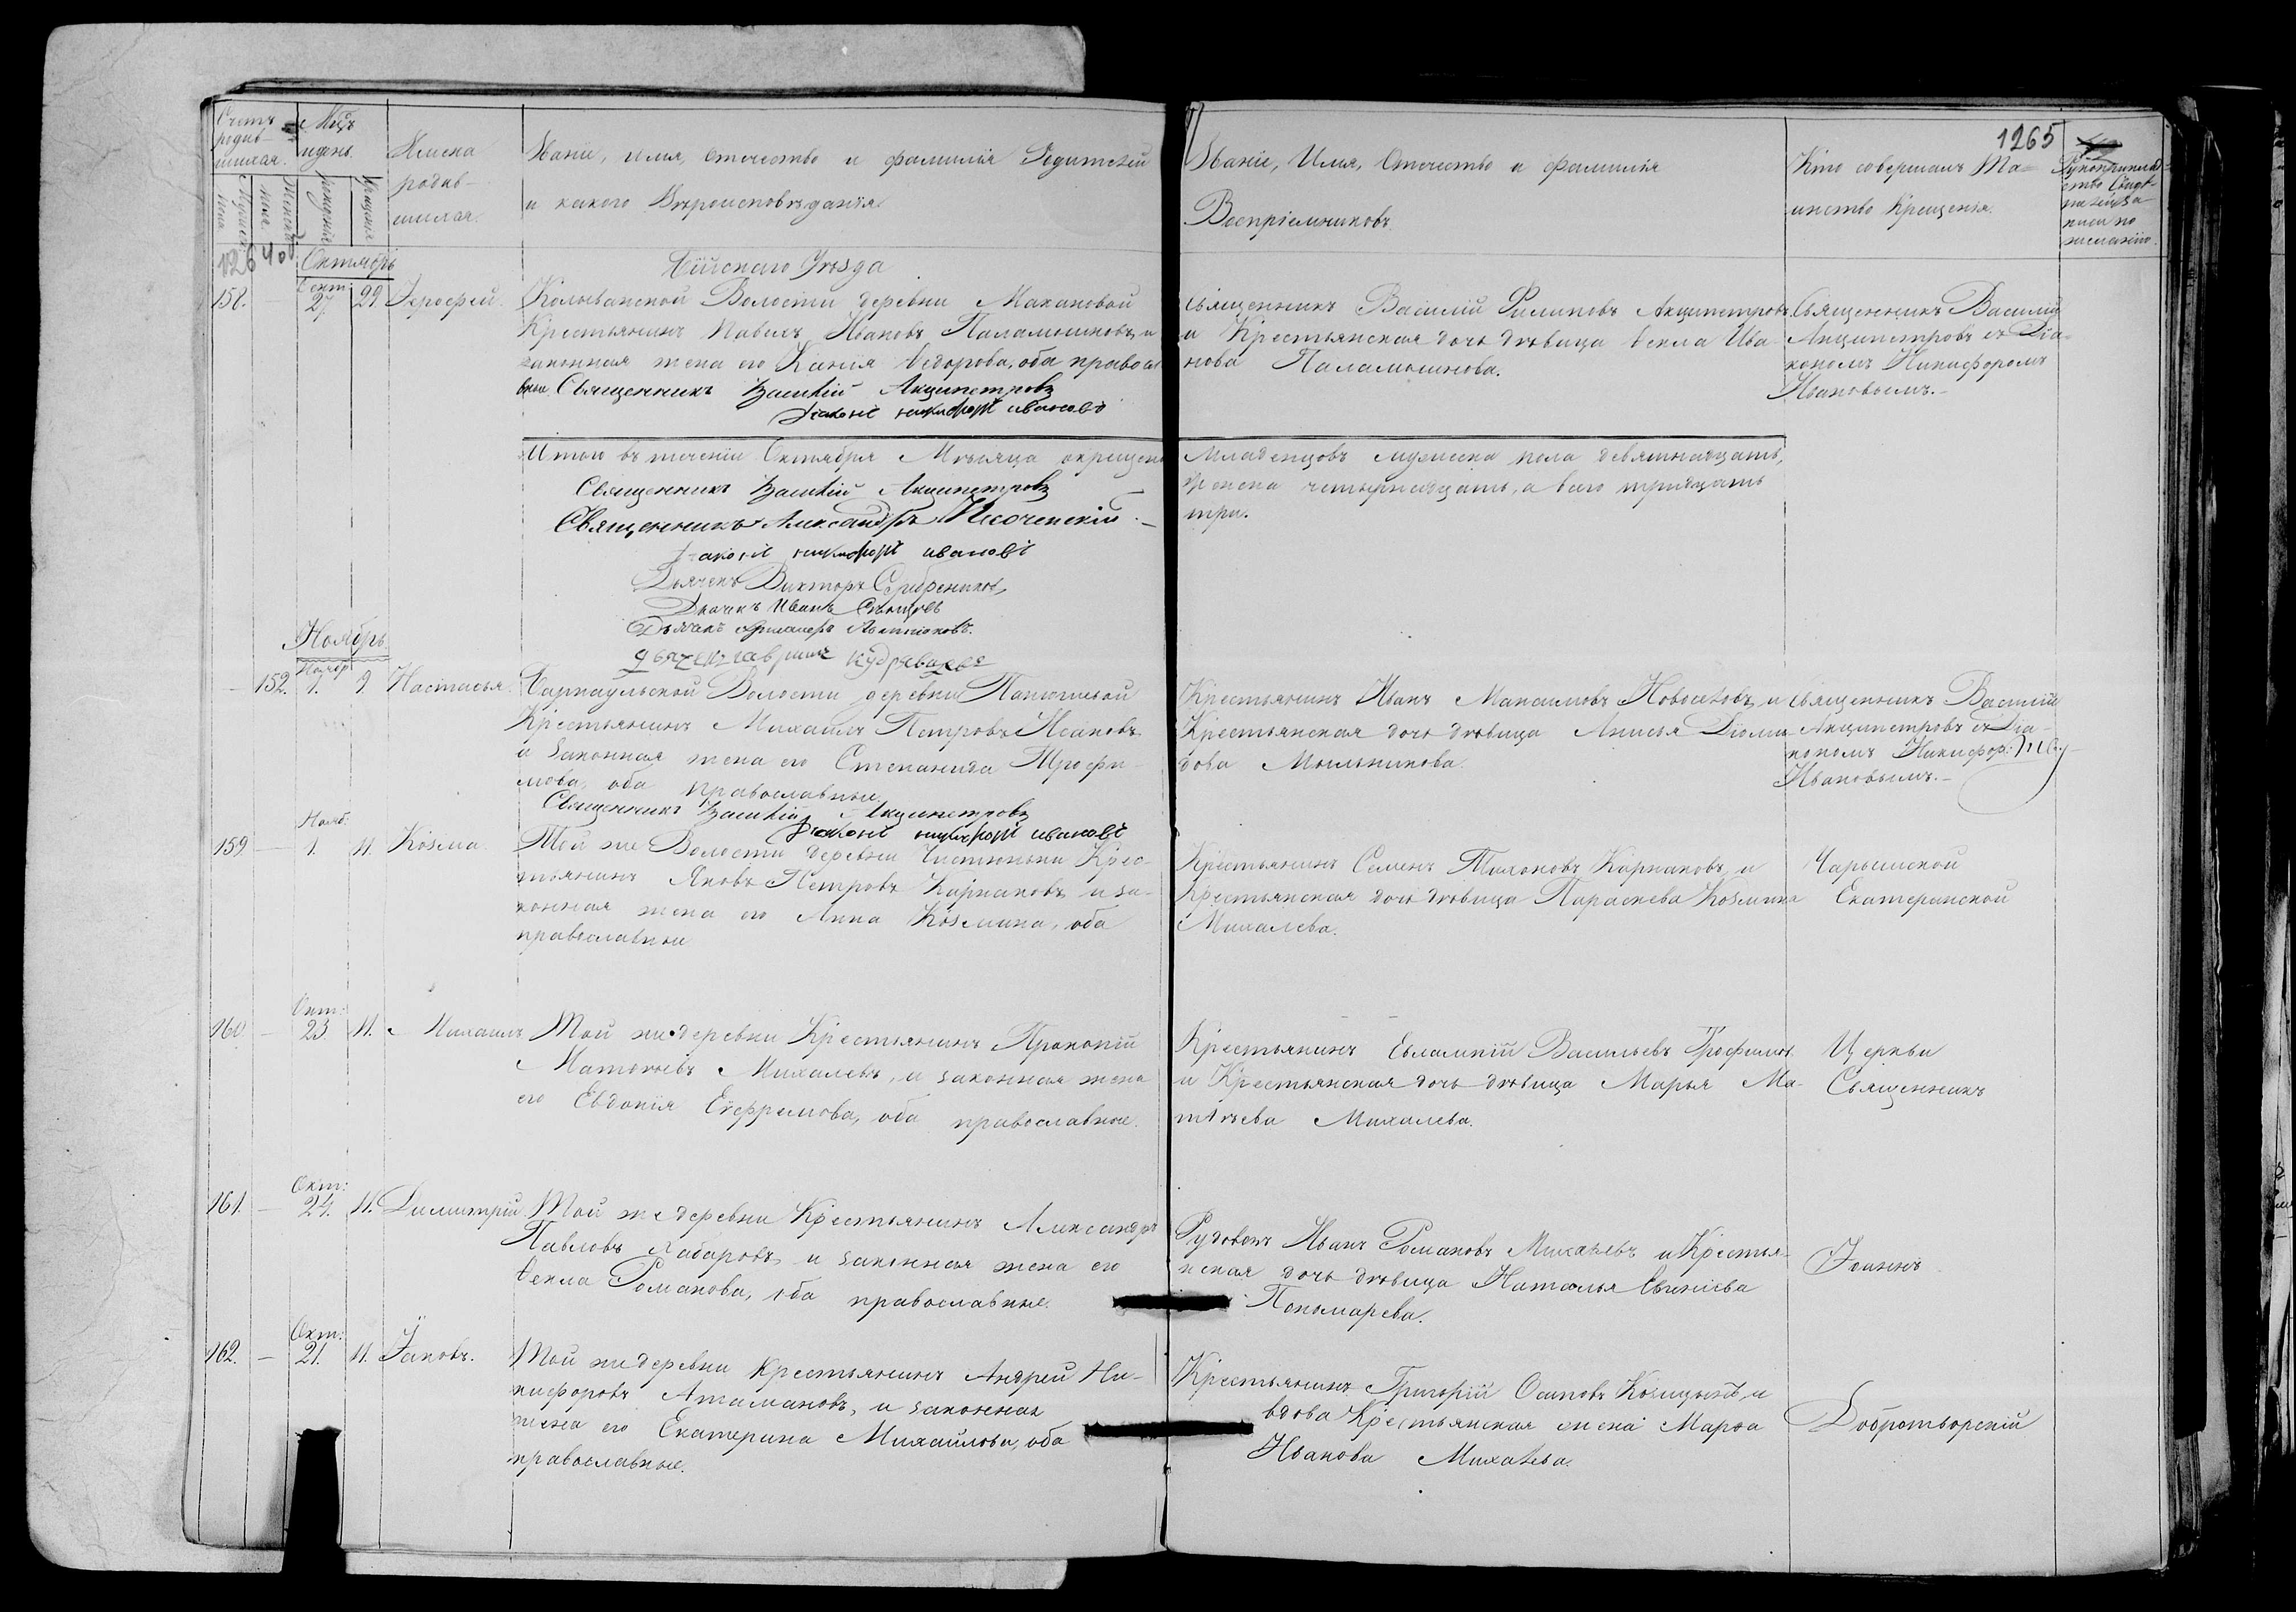 Счетъ родив-шихся.
Мѣсц. и день.
Имена родив-шихся.
Званіе, имя, отечество и фамилія Родителей
и какого Вѣроисповѣданія.
Званіе, Имя, Отечество и фамилія
Воспріемниковъ.
1265
Кто совершалъ Та-
инство Крещенія.
Октябрь
Бійскаго Уѣзда
158. Окт: 27. 29. Іерофей.
Колыванской Волости деревни Макановой
Крестьянинъ Павелъ Ивановъ Паламошновъ, и
законная жена его Ксенія Ѳедорова, оба правосла
вные Священникъ Василій Акципетровъ
Діаконъ никифоръ ивановъ
Священникъ Василій Филиповъ Акципетровъ
и Крестьянская дочь дѣвица Ѳекла Ива-
нова Паламошнова.
Священникъ Василій
Акципетровъ съ Діа-
кономъ Никифоромъ
Ивановымъ.-
Итого въ теченіи Октября Мѣсяца окрещено
Священникъ Василій Акципетровъ
Священникъ Александръ Песоченскій.
Діаконъ никифоръ ивановъ
Дьячекъ Викторъ Серебрениковъ
Дьячекъ Иванъ
Кудрявцевъ
Младенцовъ мужеска пола девятнадцать,
женска четырнадцать, а всего тридцать
три.
Ноябрь
152. Ноябр 1. 9. Настасья.
Барнаульской Волости деревни Панюшевой
Крестьянинъ Михаилъ Петровъ Исаковъ
и законная жена его Степанида Трофи-
мова, оба православные.
Священникъ Василій Акципетровъ
Діаконъ никифоръ ивановъ
Крестьянинъ Иванъ Максимовъ Новоселовъ, и
Крестьянская дочь дѣвица Анисья Діоми-
дова Мыльникова.
Священникъ Василій
Акципетровъ съ Діа-
кономъ Никифор:
Ивановымъ.-
159 Нояб: 1. 11. Козма
Той же Волости деревни Чистюньки Крес-
тьянинъ Яковъ Петровъ Карпаковъ, и за-
конная жена его Анна Козмина, оба
православные
Крестьянинъ Семенъ Тихоновъ Карпаковъ, и
Крестьянская дочь дѣвица Параскева Козмина
Михалева.
Чарышской
Екатеринской
160 Окт: 23 11. Михаилъ
Той же деревни Крестьянинъ Прокопій
Матвѣевъ Михалевъ, и законная жена
его Евдокія Ефремова, оба православные.
Крестьянинъ Евлампій Васильевъ Трофимовъ
и Крестьянская дочь дѣвица Марья Ма-
твѣева Михалева.
Церкви
Священникъ
161. Окт: 24. 11. Димитрій
Той же деревни Крестьянинъ Александръ
Павловъ Хабаровъ и законная жена его
Ѳекла Романова, оба православные.
Рудовозъ Иванъ Романовъ Михалевъ и Крестья-
нская дочь дѣвица Наталья Евгеніева
Пономарева.
Іоаннъ
162. Окт: 21. 11. Іаковъ.
Той же деревни Крестьянинъ Андрей Ни-
кифоровъ Атамановъ, и законная
жена его Екатерина Михайлова, оба
православные.
Крестьянинъ Григорій Осиповъ Козицынъ, и
вдова Крестьянская жена Марѳа
Иванова Михалева.
Добротворскій